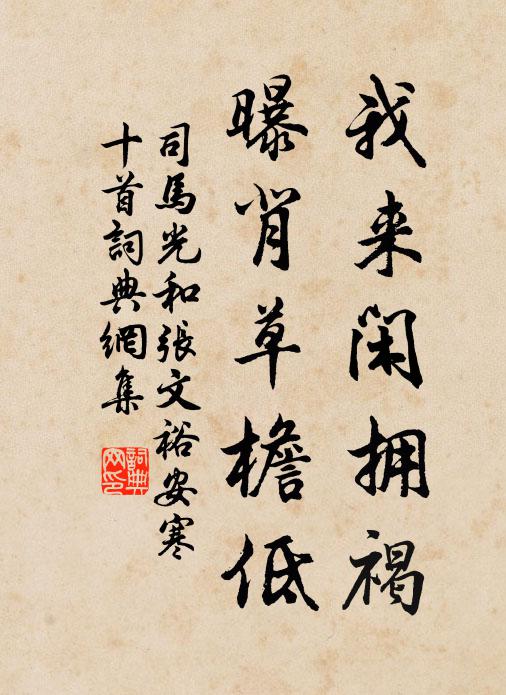 我来闲拥褐
曝背草檐低
司馬光和張文裕安寒
十首詞典網集
詞典网印